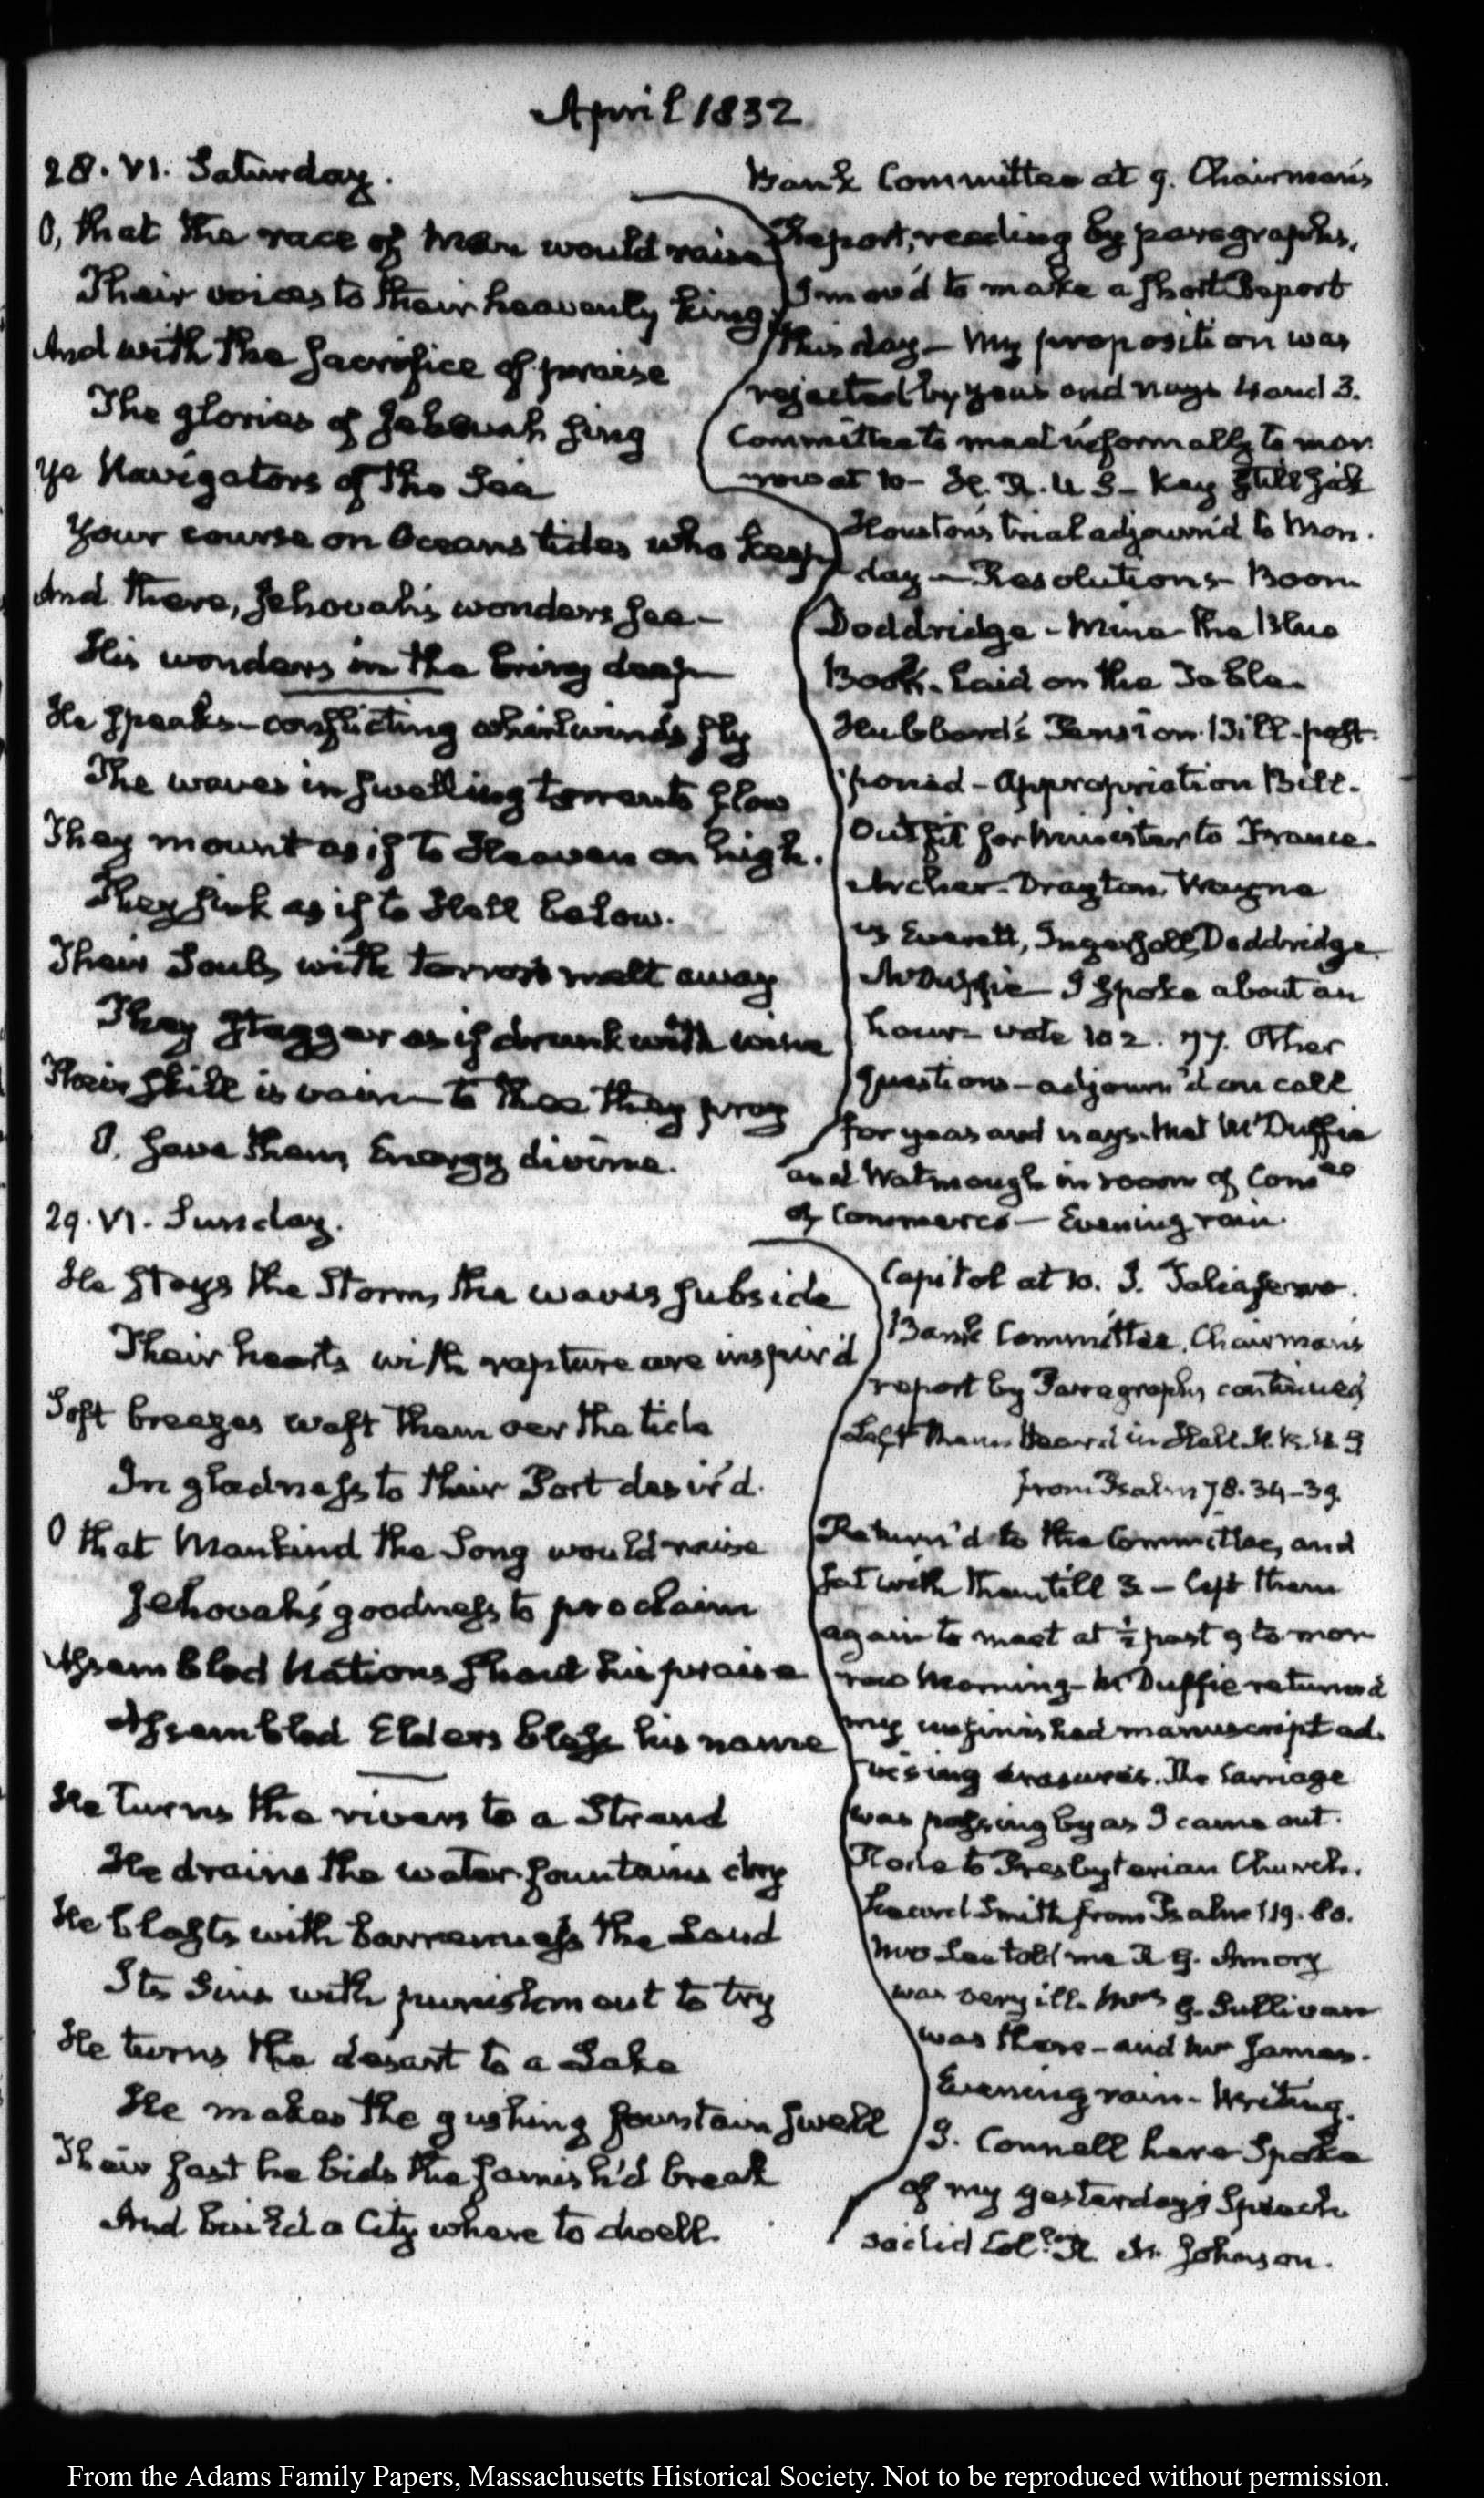 April 1832
28. VI. Saturday.
O, that the race of Man would raise
Their voices to their heavenly king,
And with the sacrifice of praise
The glories of Jehovah sing
Ye Navigators of the Sea
Your course on Oceans tides who keep
And there, Jehovah's wonders see—
His wonders in the briny deep—
He speaks—conflicting whirlwinds fly
The waves in swelling torrents flow
They mount as if to Heaven on high.
They sink as if to Hell below.
Their Souls with terrors melt away
They stagger as if drunk with wine
Their skill is vain—to thee they pray
O, save them, Energy divine.
Bank Committee at 9. Chairman's
Report, reading by paragraphs,
I mov'd to make a short Report
this day—My proposition was
rejected by yeas and nays 4 and 3.
Committee to meet informally to mor
row at 10—H. R. U S—Kay still sick
Houston's trial adjourn'd to Mon.
day—Resolutions—Boon
Doddridge—Mine the Blue
Book. Laid on the Table.
Hubbard's Pension Bill—post
poned—Appropriation Bill.
Outfit for Minister to France.
Archer. Drayton, Wayne
vs Everett, Ingersoll, Doddridge
McDuffie—I spoke about an
hour—vote 102. 77. Other
questions—adjourn'd on call
for yeas and nays. Met McDuffie
and Watmough in room of Comee
of Commerce—Evening rain.
29. VI. Sunday.
He stays the Storm, the waves subside
Their hearts with rapture are inspir'd
Soft breezes waft them oer the tide
In gladness to their Port desir'd.
O that Mankind the Song would raise
Jehovah's goodness to proclaim
Assembled Nations shout his praise
Assembled Elders bless his name
He turns the rivers to a Strand
He drains the water fountains dry
He blasts with barrenness the Land
Its Sins with punishment to try
He turns the desart to a Lake
He makes the gushing fountain swell
Their fast he bids the famish'd break
And build a City where to dwell.
Capitol at 10. J. Taliaferro.
Bank Committee. Chairman's
report by Paragraphs continued
Left them. Heard in Hall H. R. U. S
from Psalm 78. 34–39.
Return'd to the Committee, and
sat with them till 3—left them
again to meet at ½ past 9 to-mor
row Morning—McDuffie returned
my unfinished manuscript ad.
vising erasures. The Carriage
was passing by as I came out.
Rode to Presbyterian Church.
Heard Smith from Psalm 119. 80.
Mrs Lee told me R G. Amory
was very ill. Mrs G. Sullivan
was there—and Mr James.
Evening rain—Writing.
J. Connell here Spoke
of my yesterday's Speech
so did Coll R. M. Johnson.
From the Adams Family Papers, Massachusetts Historical Society. Not to be reproduced without permission.